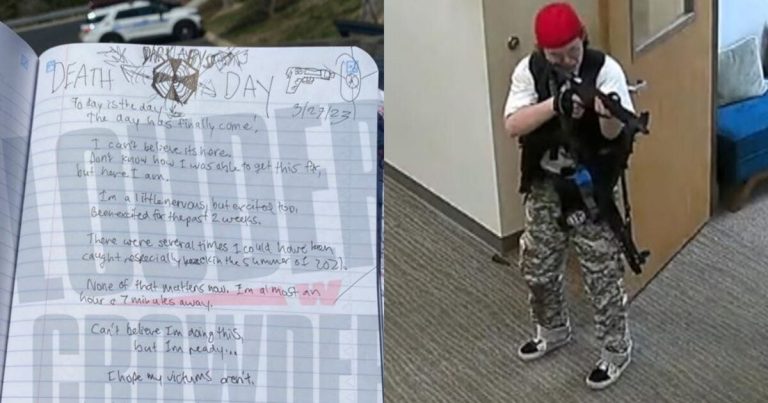 DARK ABYSS
DEATH DAY
3/27/23
Today is the day
The day has finally come!
I can't believe its here.
Don't know how I was able to get this far,
but here I am.
I'm a little nervous, but excited too,
Been excited for the past 2 weeks.
There were several times I could have been
caught, especially back in the summer of 2021.
None of that matters now. I'm almost an
hour & 7 minutes away.
Can't believe I'm doing this,
but I'm ready...
I hope my victims aren't.
LOUDER
W
CROWDER